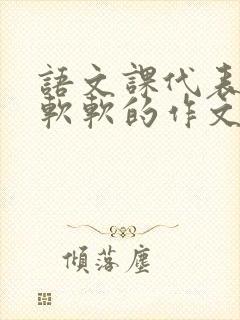 語文課代表
軟軟的作文
傾落塵